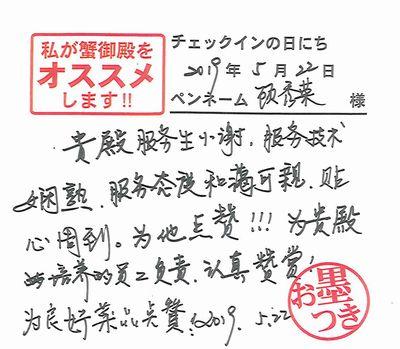 私が蟹御殿を
オススメ
します!!
チェックインの日にち
2019年5月22日
ペンネーム 顾秀菜 様
贵殿服务生小谢，服务技术
娴熟、服务态度和蔼可亲、贴
心周到。为他点赞!!! 为贵殿
培养的员工负责、认真赞赏!
为良好菜品点赞! 2019. 5.22
お墨
つき